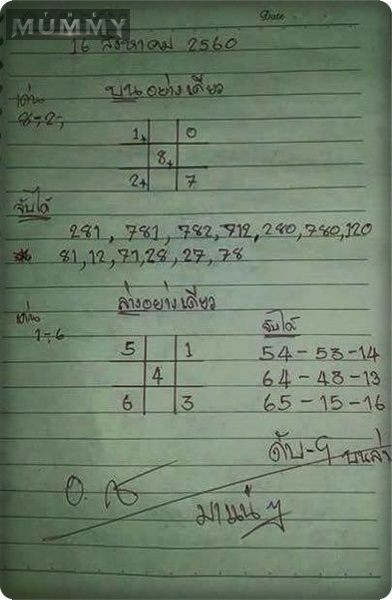 THE
MUMMY
Date
16 สิงหาคม 2560
เด่น บนอย่างเดียว
8-,2-,
1+ 0
8+
2+ 7
จับได้
281, 781, 782, 712, 280, 780, 120
81, 12, 71, 28, 27, 78
เด่น ล่างอย่างเดียว
1-,6 จับได้
5 1 54-53-14
4 64-43-13
6 3 65-15-16
ดับ-9 บนล่าง
มาแน่ๆ